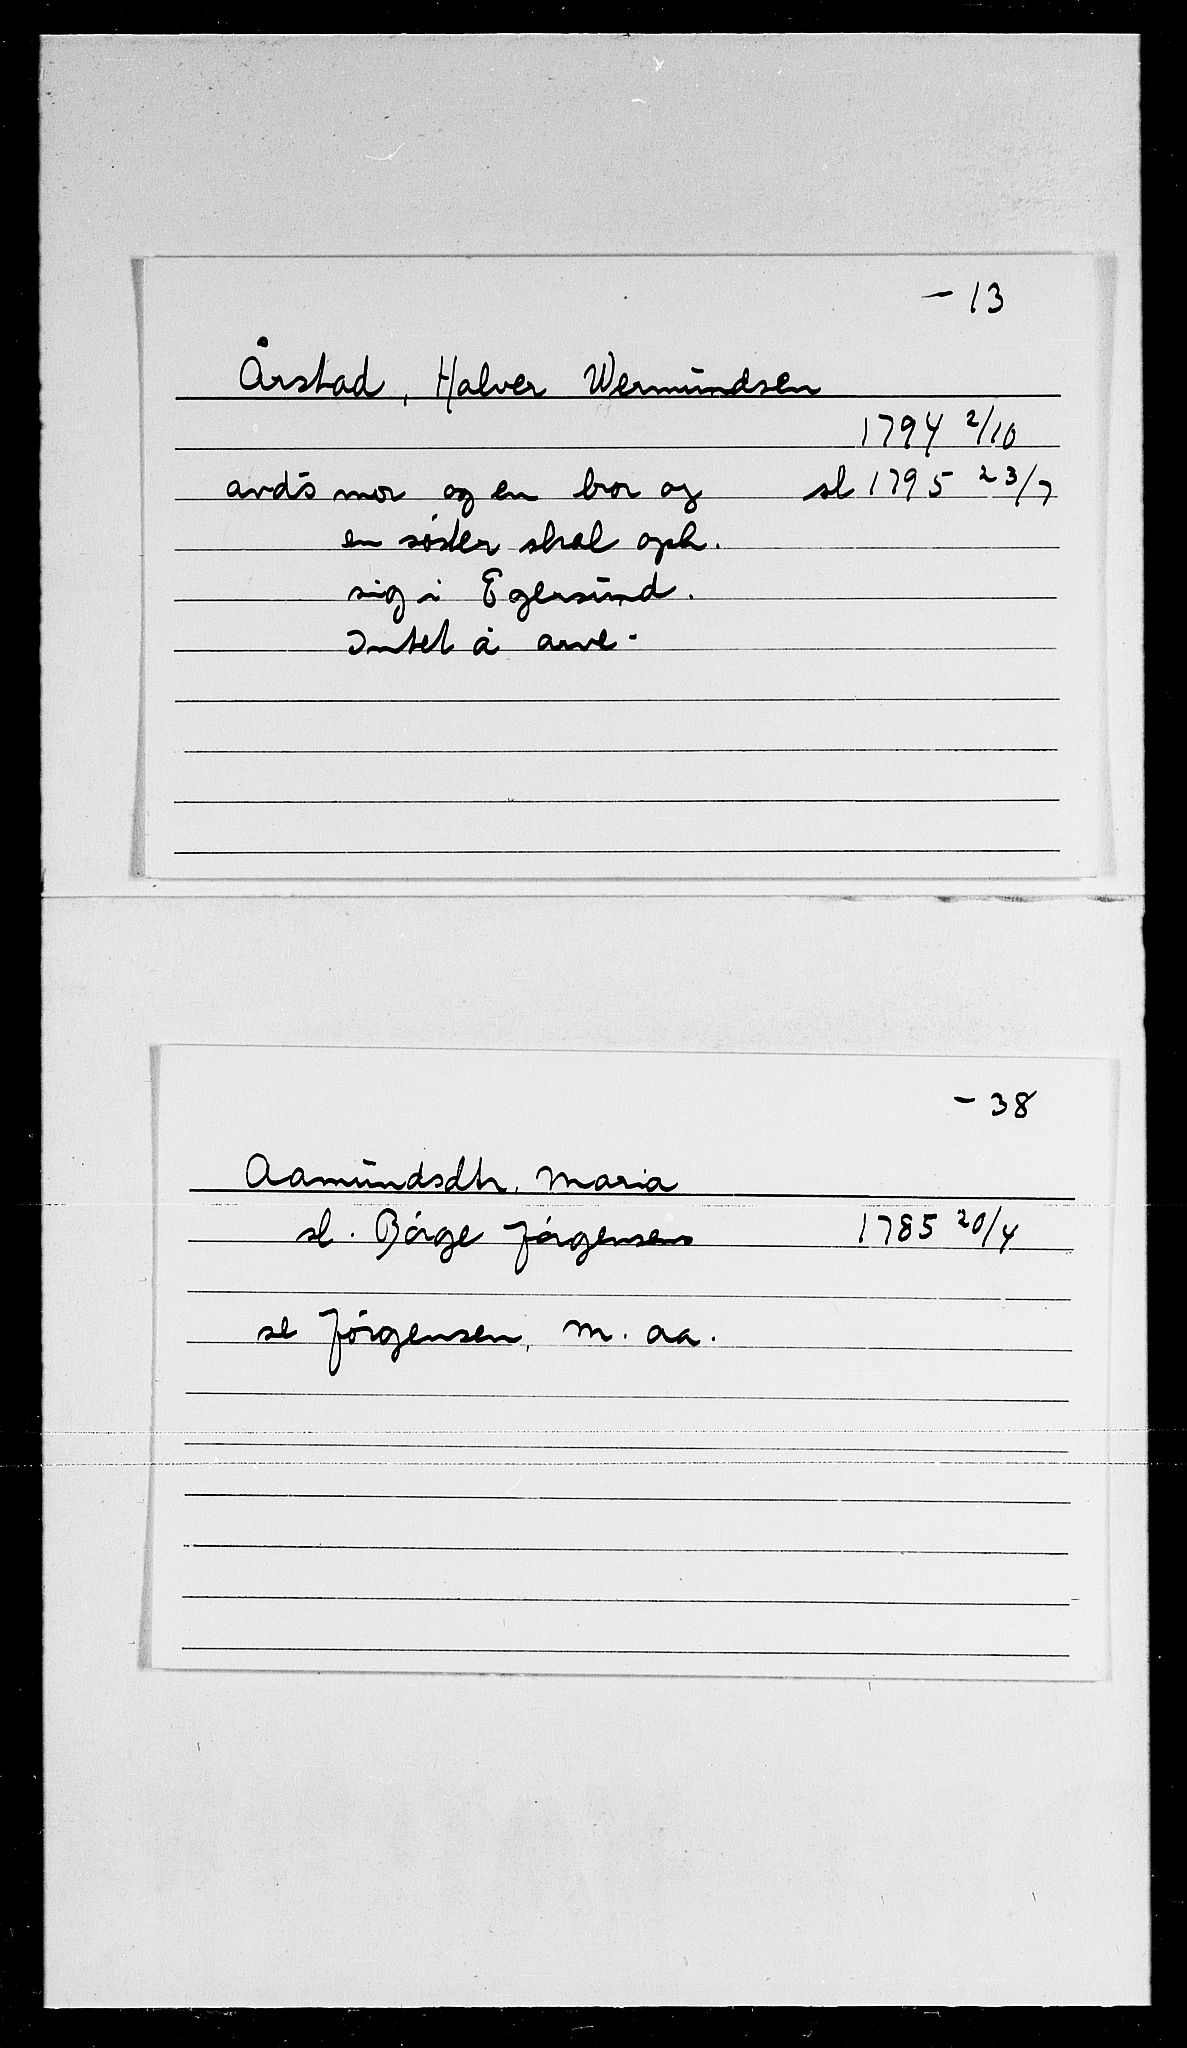 - 13
Årstad, Halver Wermundsen
1794 2/10
avd's mor og en bror og sl 1795 23/7
en søster skal oph.
sig i Egersund.
Intet å arve.
- 38
Aamundsdtr, Maria
sl. Börge Jörgensens 1785 20/4
se Jörgensen, M. Aa.